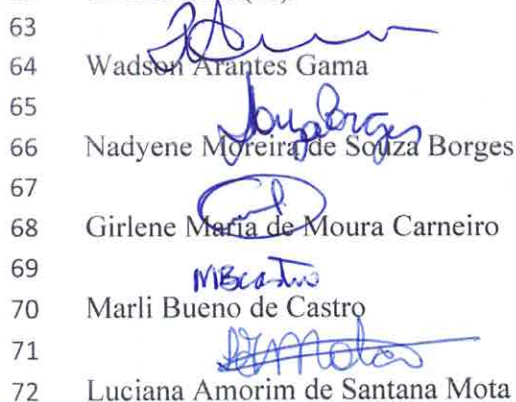 63
64 Wadson Arantes Gama
65 Souza Borges
66 Nadyene Moreira de Souza Borges
67
68 Girlene Maria de Moura Carneiro
69 MBcastro
70 Marli Bueno de Castro
71
72 Luciana Amorim de Santana Mota